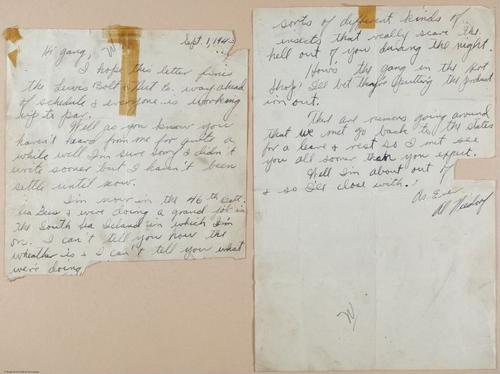 Sept. 1, 194
Hi gang,
I hope this letter finds
the Lewis Bolt & Nut Co. way ahead
of schedule & everyone is working
up to par.
Well as you know you
haven't heard from me for quite a
while well I'm sure sorry I didn't
wrote sooner but I haven't been
settle until now.
I'm now in the 46th Batt.
& were doing a grand job in
the South Sea Island in which I'm
on. I can't tell you how the
wheather is & I can't tell you what
we're doing
sorts of different kinds of
insects that really scare the
hell out of you during the night.
Hows the gang in the
Shop, I'll bet theyr putting the product
ion out.
There are rumors going around
that we met go back to the states
for a leave & rest so I met see
you all sooner than you expect.
Well I'm about out of
& so I'll close with.
As Ever
Al
W